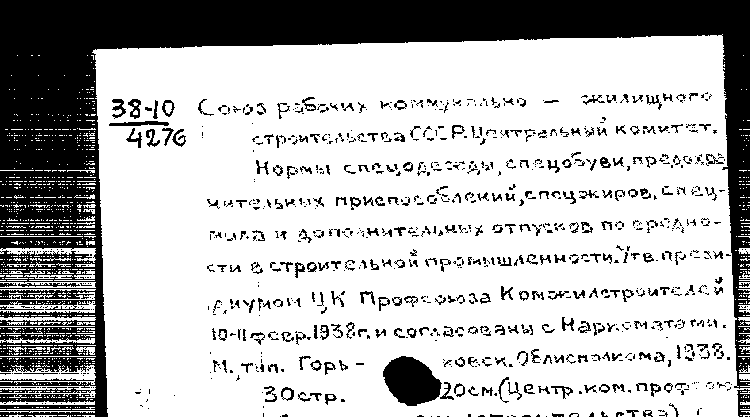 38-10 Союз рабочих коммунально — жилищного
4276 строительства СССР. Центральный комитет.
Нормы спецодежды, спецобуви, предохра-
нительных приспособлений, спецжиров, спец-
мыла и дополнительных отпусков по вредно-
сти в строительной промышленности. Утв. прези-
диумом ЦК Профсоюза Комжилстроителей
10-11 февр. 1938 г. и согласованы с Наркоматами.
М., тип. Горь- ковск. Облисполкома, 1938.
30 стр. 20 см. (Центр. ком. профсою-